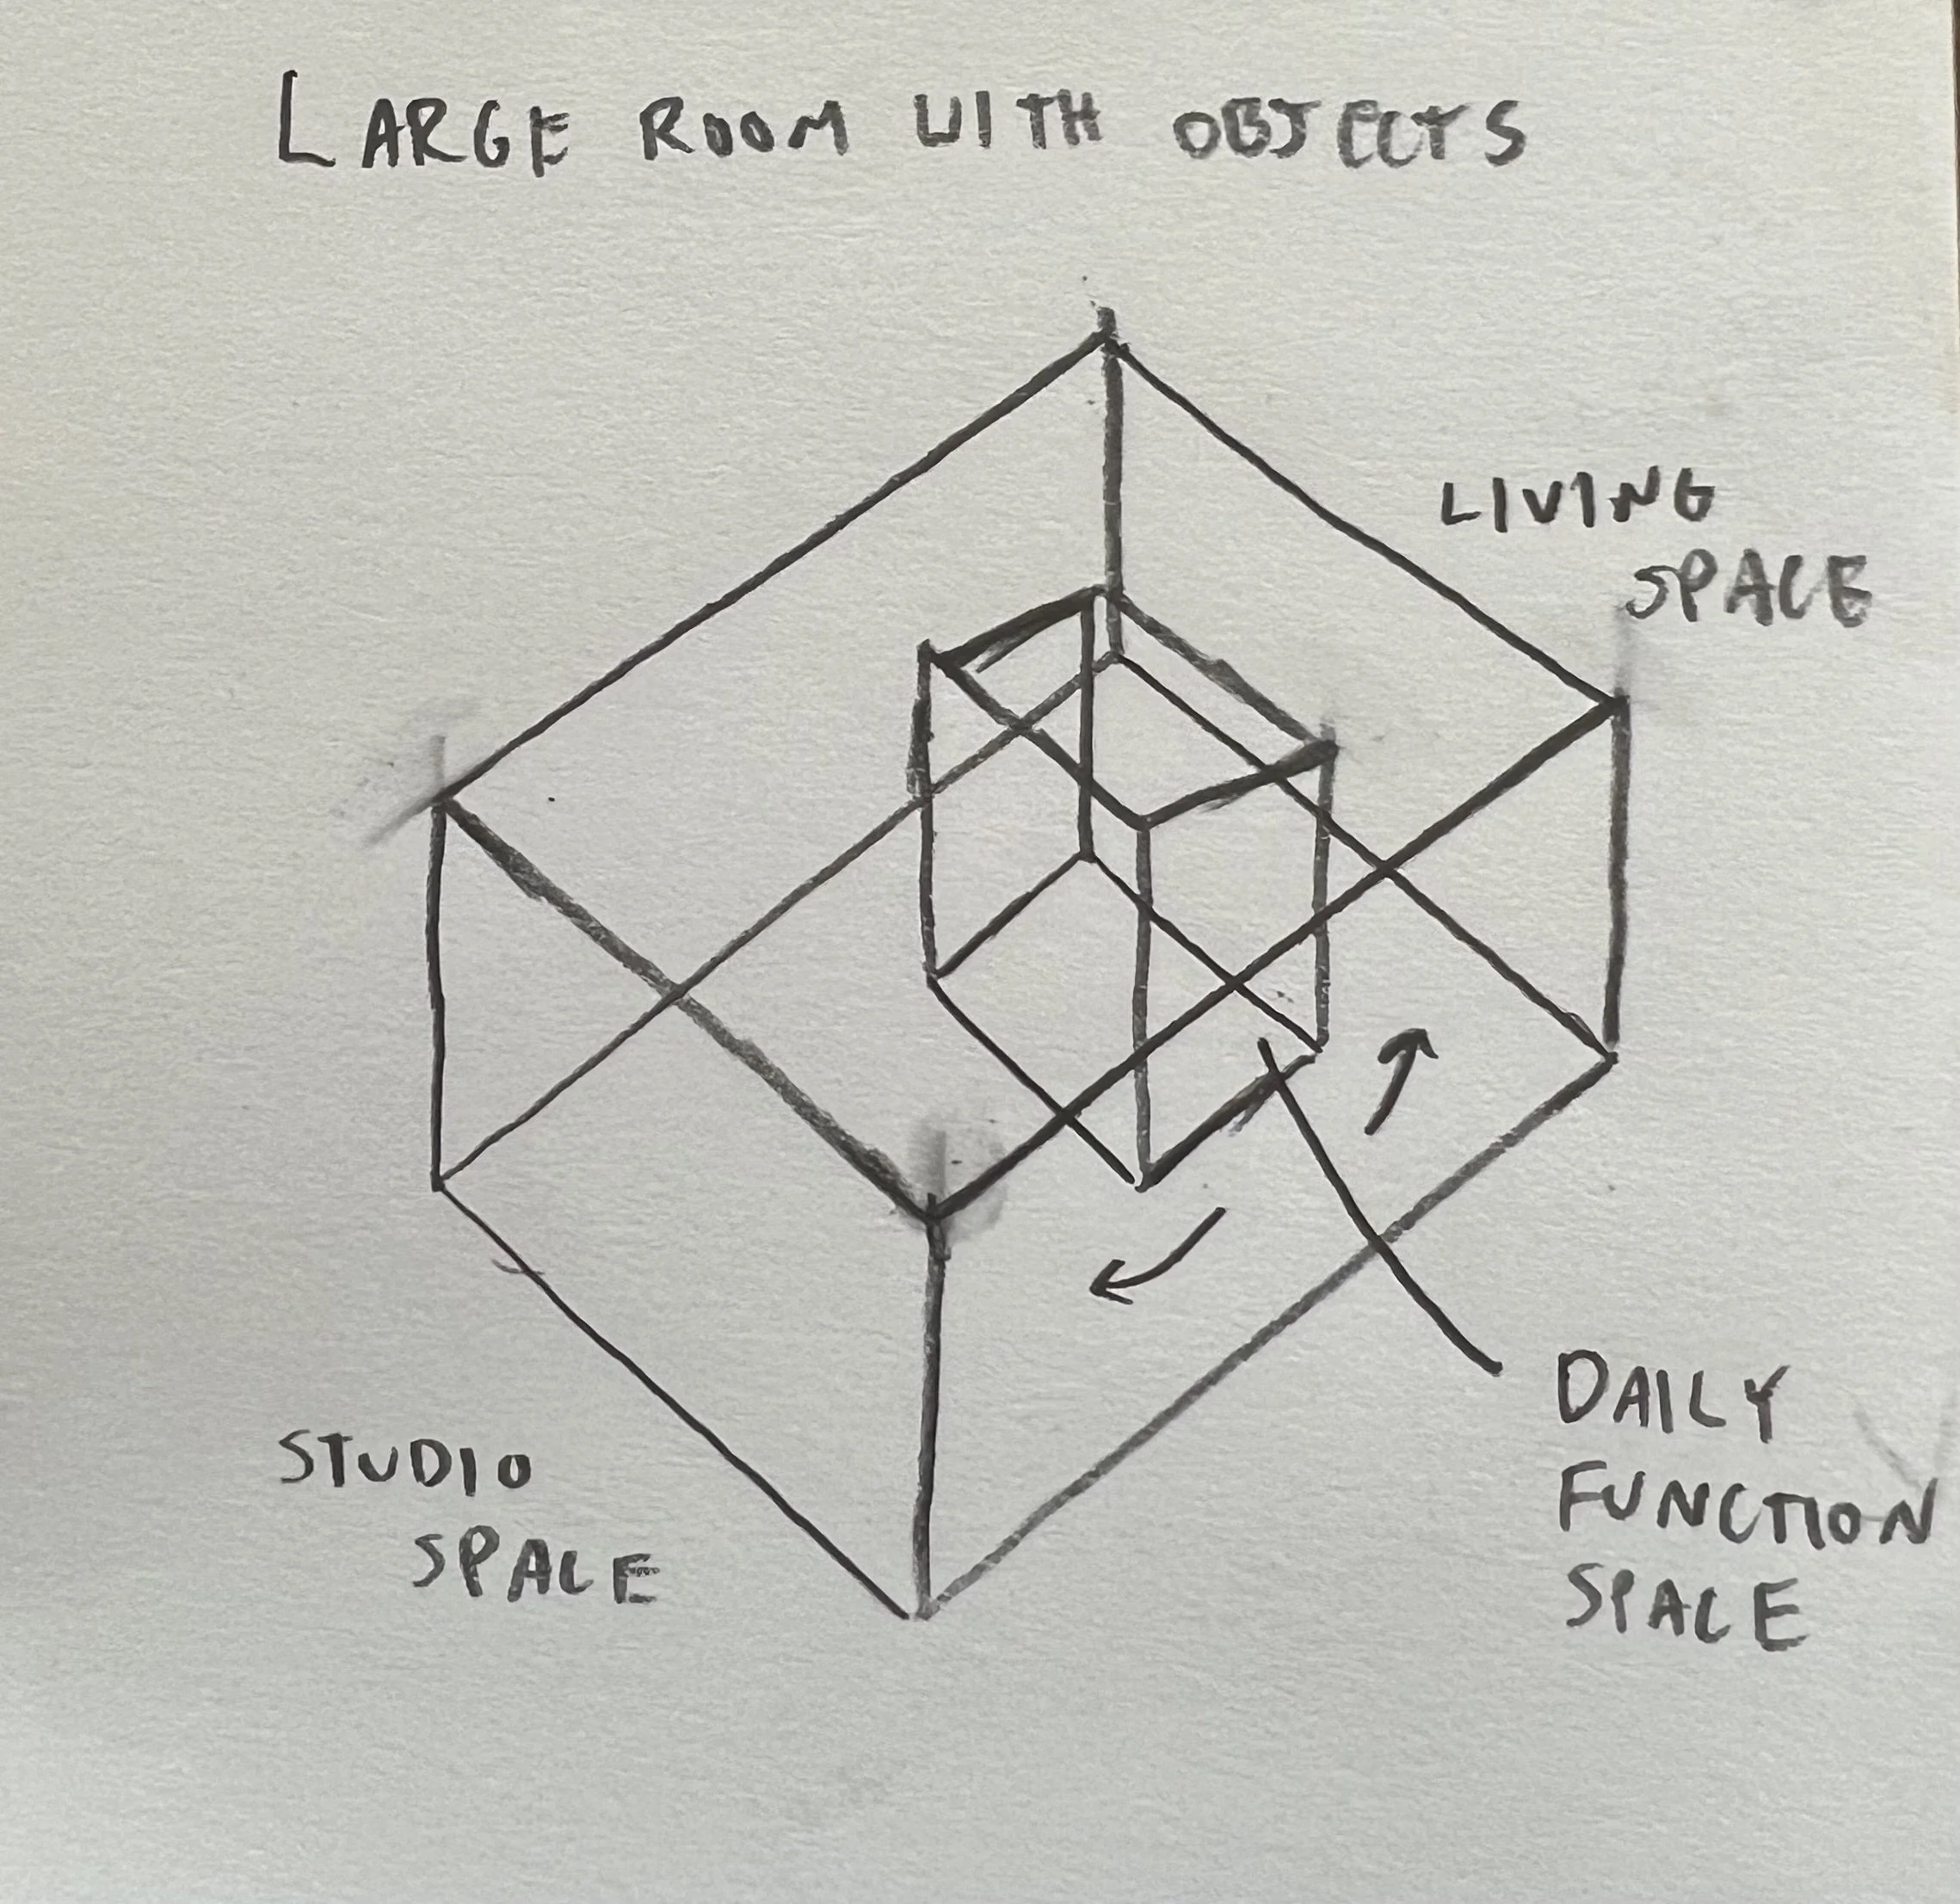 LARGE ROOM WITH OBJECTS
LIVING
SPACE
STUDIO
SPACE
DAILY
FUNCTION
SPACE